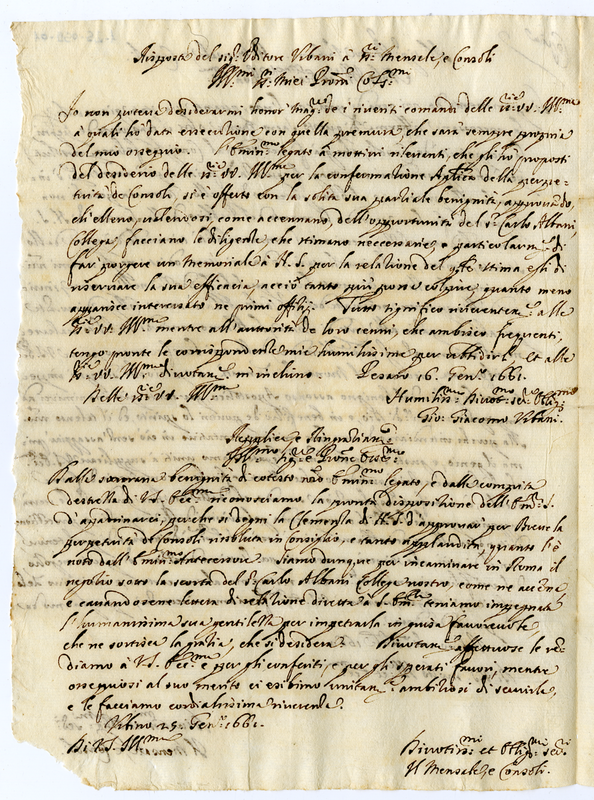 Risposta del sig.r Uditore Urbani à SS.ri Mensole, e Consoli
Ill.mi SS.ri miei Pron.i Col.mi
Io non poteva desiderarmi honor mag.re de i riveriti comandi delle SS.rie VV. Ill.me
a quali hò data essecutione con quella premura, che sarà sempre propria
del mio ossequio. L'Em.mo legato à mottivi rilevanti, che gli hò proposti
del desiderio delle SS.rie VV. Ill.me per la confermatione della perpe-
tuità de Consoli, si è offerto con la solita sua partiale benignità, approvando,
ch'elleno, valendosi, come accennano, dell'opportunità del S.r Carlo Albani
Collega, facciano le diligenze, che stimano neccessarie, e particolarm.e di
far porgere un Memoriale à N. S. per la relatione del q.le stima egli di
riservare la sua efficacia, acciò tanto più possa colpire, quanto meno
apparisce interessato ne primi offitij. Tutto significo riverentem.e alle
SS.rie VV. Ill.me mentre all'autorità de loro cenni, che ambisco frequenti,
tengo pronte le corrispondenze mie humilissime per ubbidirle, et alle
SS.rie VV. Ill.me divotam.e m'inchino. Pesaro 16. Gen.o 1661.
Delle SS.rie VV. Ill.me
Humiliss.mo Divot.mo ser.e Oblig.mo
Gio: Giacomo Urbani.
Replica, e Ringratiam.to
Ill.mo Sig.r e Pron.e Oss.mo
Dalla sovrana benignità di cotesto n.ro Em.mo legato, e dalla compita
destrezza di V.S. Ecc.ma riconosciamo la pronta disposizione dell'Em.za S.
d'appadrinarci, perche si degni la Clemenza di N.S. d'approvar per Breve la
perpetuità de Consoli risoluta in Consiglio, e tanto applaudita, quanto l'è
noto dall'Em.mo Antecessore. Siamo dunque per incaminare in Roma il
negotio sotto la scorta del S.r Carlo Albani Collega nostro, come ne accenna,
e cavandosene lettera di relatione diretta à S. Em.za teniamo impegnata
l'humanissima sua gentilezza per impetrarla in guisa favorevole
che ne sortisca la gratia, che si desidera. Divotam.e affettuose le ren-
diamo à V.S. Ecc.ma e per gli conferiti, e per gli sperati favori, mentre
ossequiosi al suo merito ci esibimo unitam.e ambitiosi di servirla,
e le facciamo cordialissima riverenza.
Urbino 25. Gen.o 1661.
Di V.S. Ill.ma
Divotiss.mi et Oblig.mi ser.ri
Il Mensole, e Consoli.